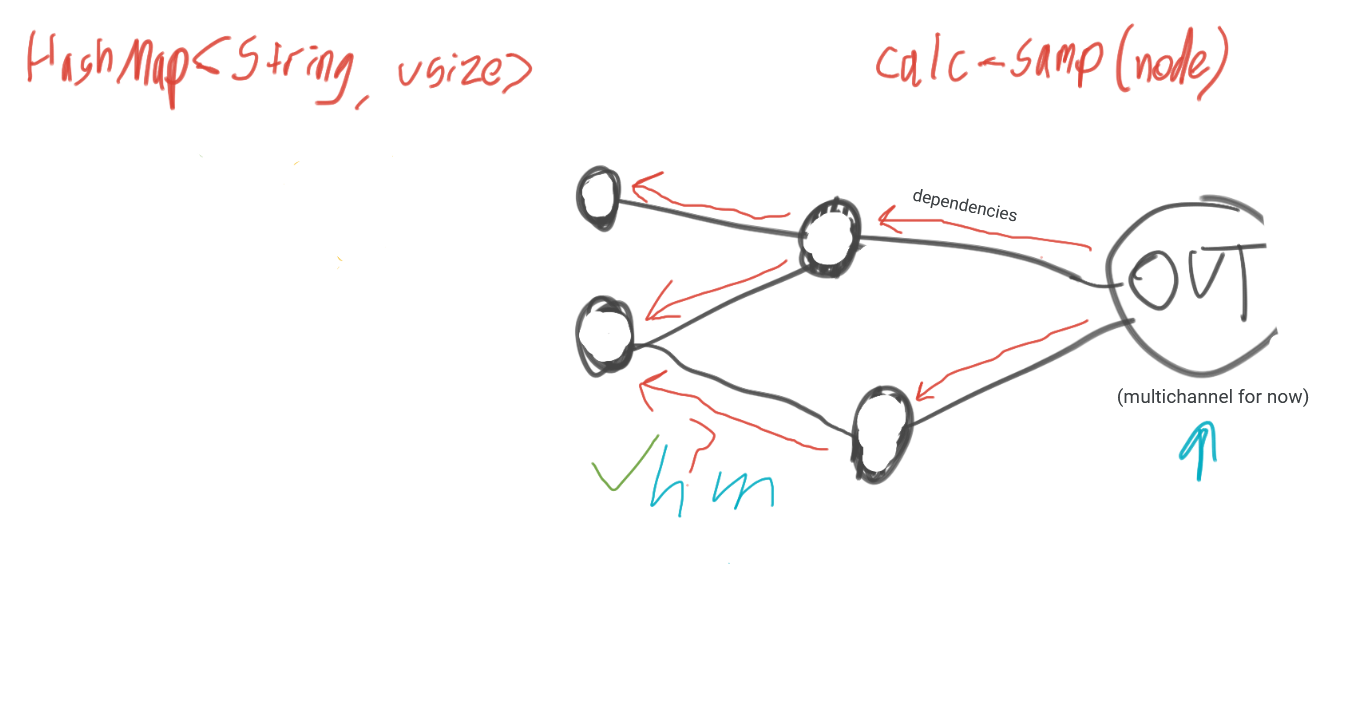 HashMap<String, usize>
calc-samp(node)
dependencies
OUT
(multichannel for now)
?
hm